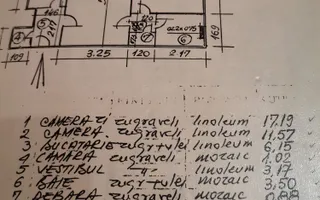 2.17
169
109
3.25
120
2.17
1 CAMERA ZI zugraveli linoleum 17.19
2 CAMERA zugraveli linoleum 11.57
3 BUCATARIE zugr+ulei linoleum 6,15
4 CAMARA zugraveli mozaic 1.02
5 VESTIBUL linoleum 3,17
6 BAIE zugr+ulei mozaic 3,50
7 DEBARA zugraveli mozaic 0,88